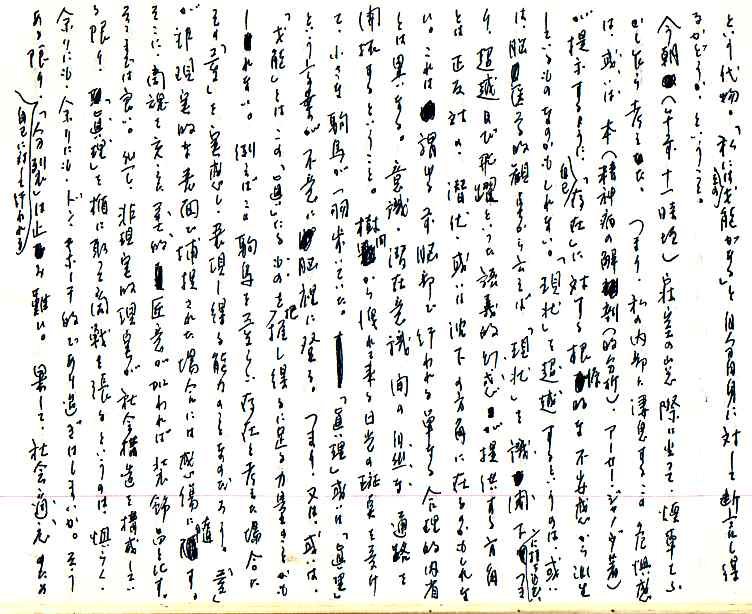 という代物。「私には才能がある」と自分自身に対して断言し得
るかどうか、ということ。
今朝(午前十一時頃)寝室の窓際に坐って、煙草をふ
かし乍ら考えた。つまり、私の内部に棲息するこの危惧感
は、或いは本(精神病の解剖(的分析)、アーサー・ジャノヴ著)
が提示するように、「自己存在」に対する根源的な不安感から派生
しているものなのかもしれない。「現状」を超越するというのは、或い
は、脳医学的観点から言えば「現状」を識閾下
り、超越及び飛躍といった語義的幻惑が提供する方角
とは正反対の、潜伏、或いは沈下の方角に在るのかもしれな
い。これは謂ゆる前脳部で行われる単なる合理的内省
とは異なる。意識・潜在意識間の自然な通路を
開拓するということ。樹間から洩れて来る日光の斑点を受け
て、小さな駒鳥が一羽歩いていた。「真理」或いは「真理」
という言葉が不意に脳裡に登る。つまり、又は、或いは、
「才能」とはこの「真」なるものを把握し得るに足る力量のことかも
しれない。例えばこの駒鳥を美しい存在と考えた場合に
その「美」を実感し、表現し得る能力のことなのだろう。「美」
が非現実的な表面で捕捉された場合には感傷に堕す。
そこに商魂を交えた美的匠意が加われば装飾品と化す。
そこまでは良い。処で、非現実的現実が社会構造を構成してい
る限り、「真理」を楯に取って商戦を張るというのは、恐らく、
余りにも、余りにも、ドン・キホーテ的であり過ぎはしまいか。そう
ある限り、「自己に対して行われる分裂」は止み難い。果して、社会通念